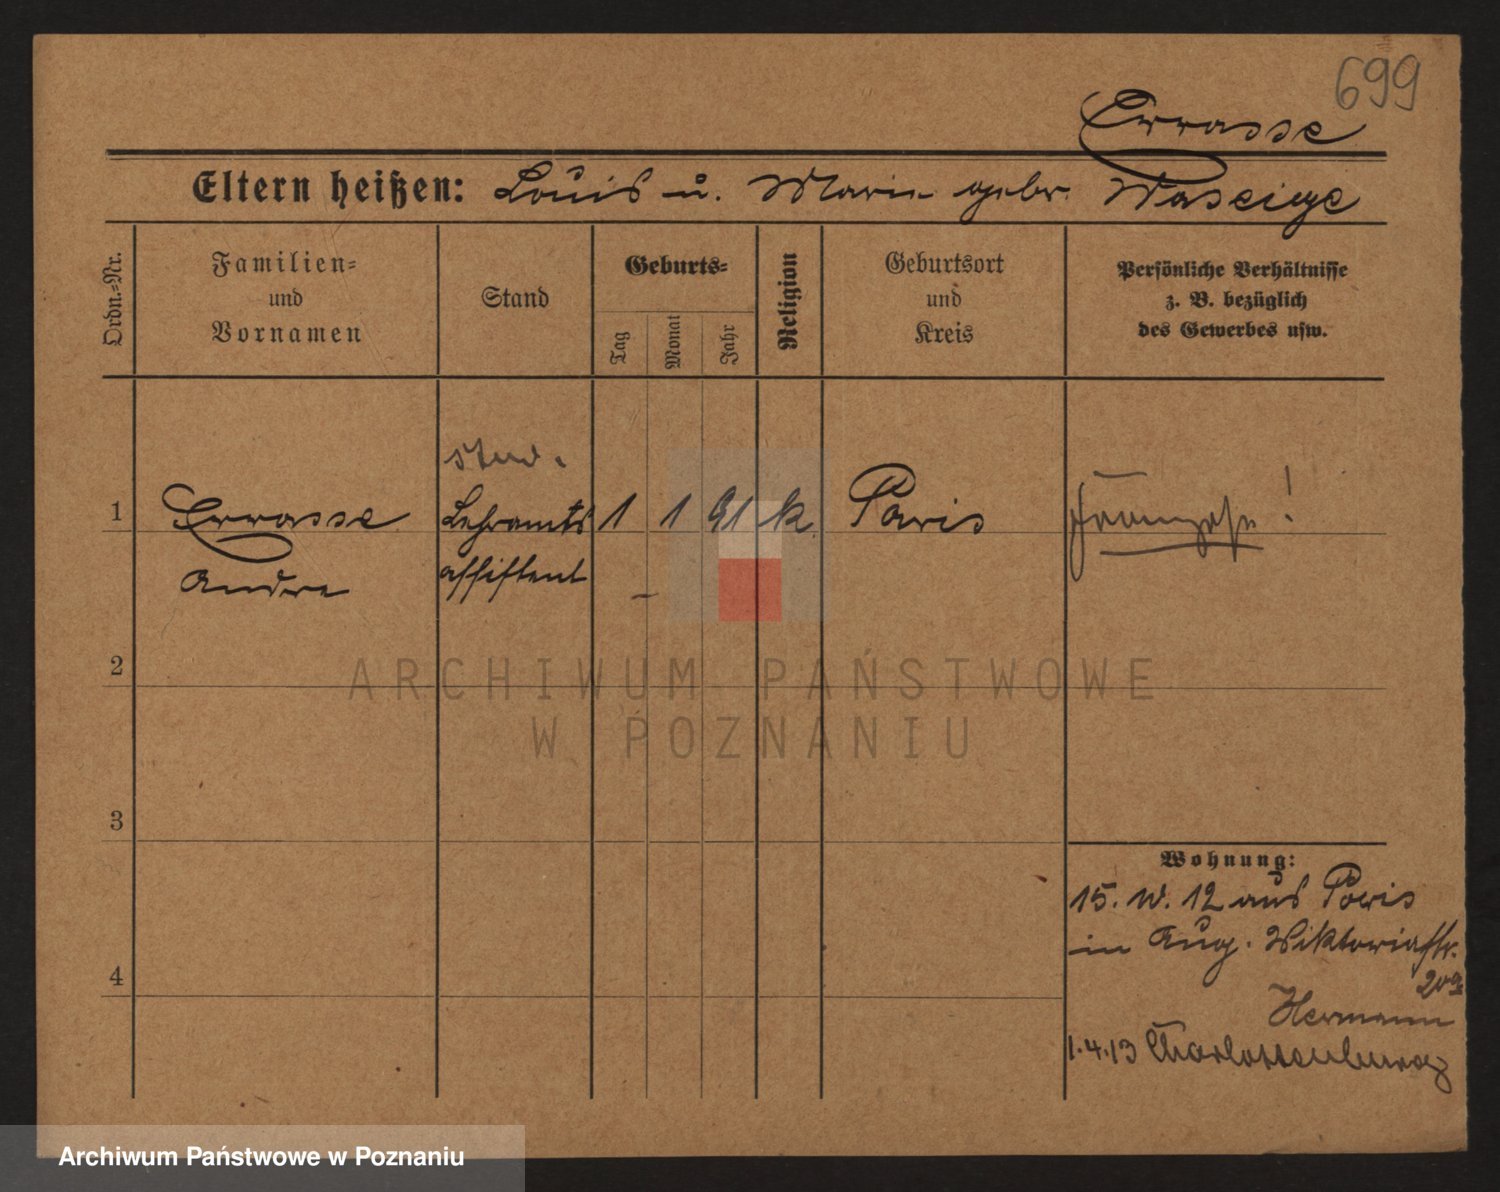 699
Errasse
Eltern heißen: Louis u. Marie gebr. Waseige
Ordn.=Nr.
Familien=
und
Vornamen
Stand
Geburts=
Tag
Monat
Jahr
Religion
Geburtsort
und
Kreis
Persönliche Verhältnisse
z. B. bezüglich
des Gewerbes usw.
stud.
1 Errasse Lehramts 1 1 91 k. Paris Franzose!
Andre assistent
2
ARCHIWUM PAŃSTWOWE
W POZNANIU
3
Wohnung:
15. 12 aus Paris
in Aug. Wiktoriastr.
20
4
Hermann
1.4.13 Charlottenburg
Archiwum Państwowe w Poznaniu